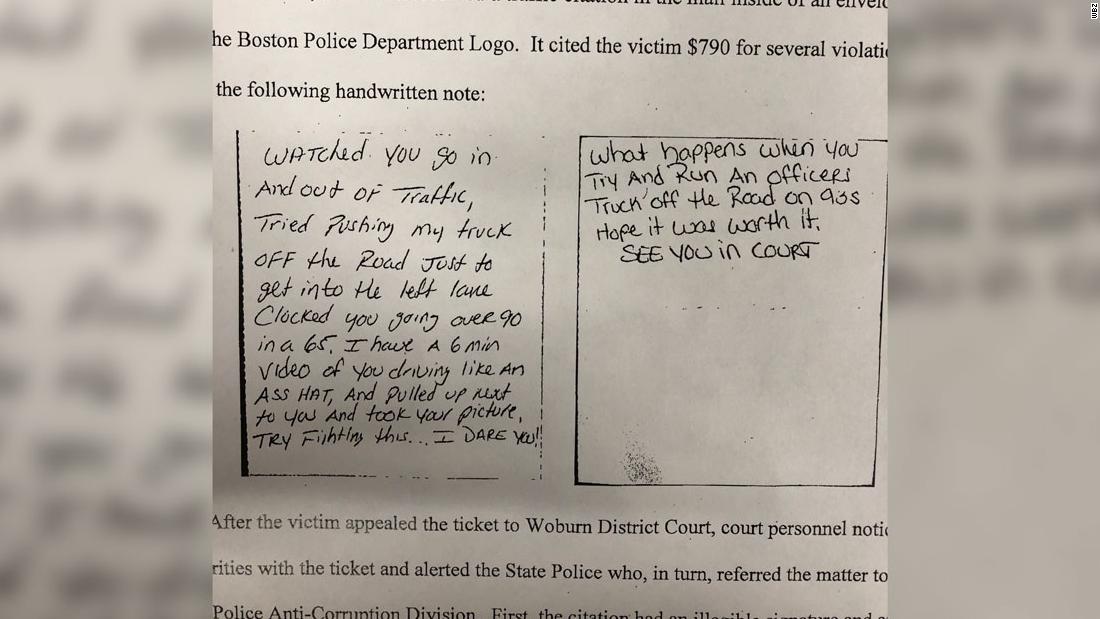 WBZ
he Boston Police Department Logo. It cited the victim $790 for several violati
the following handwritten note:
WATCHed You go in
And out of Traffic,
Tried Pushing my truck
OFF the Road Just to
get into the left lane
Clocked you going over 90
in a 65. I have A 6 min
Video of you driving like An
ASS HAT, And Pulled up next
to you And took your picture,
TRY Fighting this... I DARE YOU!!
What happens when you
Try And Run An officers
Truck off the Road on 93s
Hope it was worth it.
SEE YOU in COURT
After the victim appealed the ticket to Woburn District Court, court personnel notic
rities with the ticket and alerted the State Police who, in turn, referred the matter to
Police Anti-Corruption Division. First, the citation had an illegible signature and